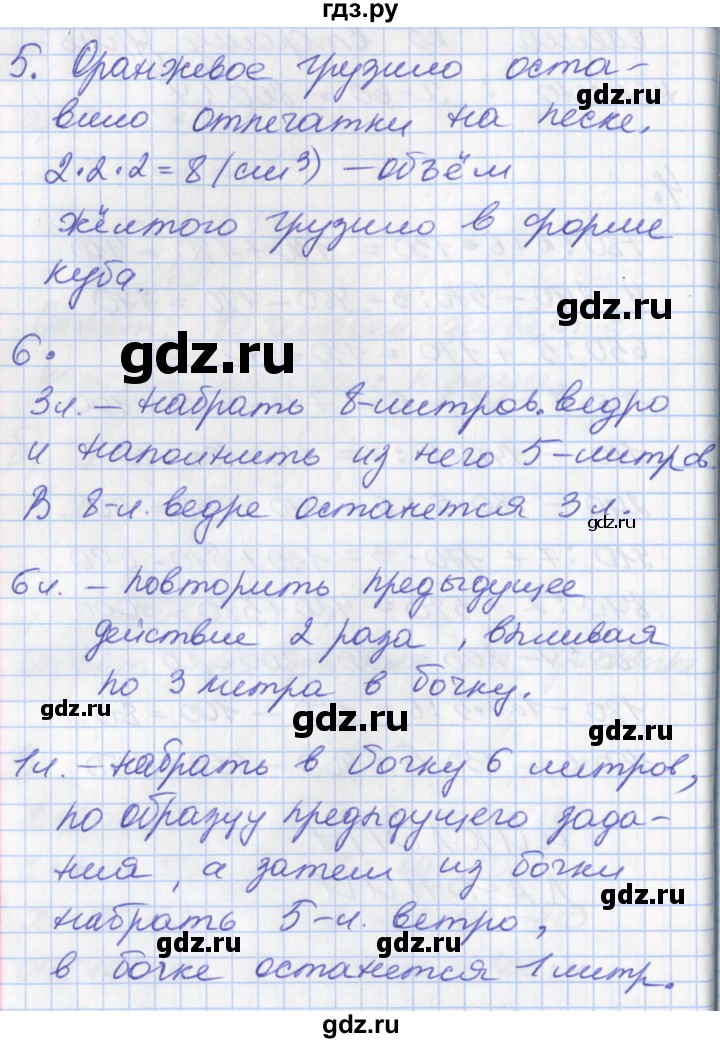 гдз.ру
5. Оранжевое грузило оста-
gdz.ru
вило отпечатки на песке.
2·2·2=8 (см³) — объём
жёлтого грузило в форме
куба.
gdz.ru
6.
gdz.ru
3л. – набрать 8-литров. ведро
и наполнить из него 5-литров.
В 8-л. ведре останется 3л.
gdz.ru
6л. – повторить предыдущее
действие 2 раза, выливая
по 3 литра в бочку.
gdz.ru
gdz.ru
gdz.ru
1л. – набрать в бочку 6 литров,
по образцу предыдущего зада-
ния, а затем из бочки
gdz.ru
набрать 5-л. ветро,
gdz.ru
gdz.ru
в бочке останется 1 литр.
gdz.ru